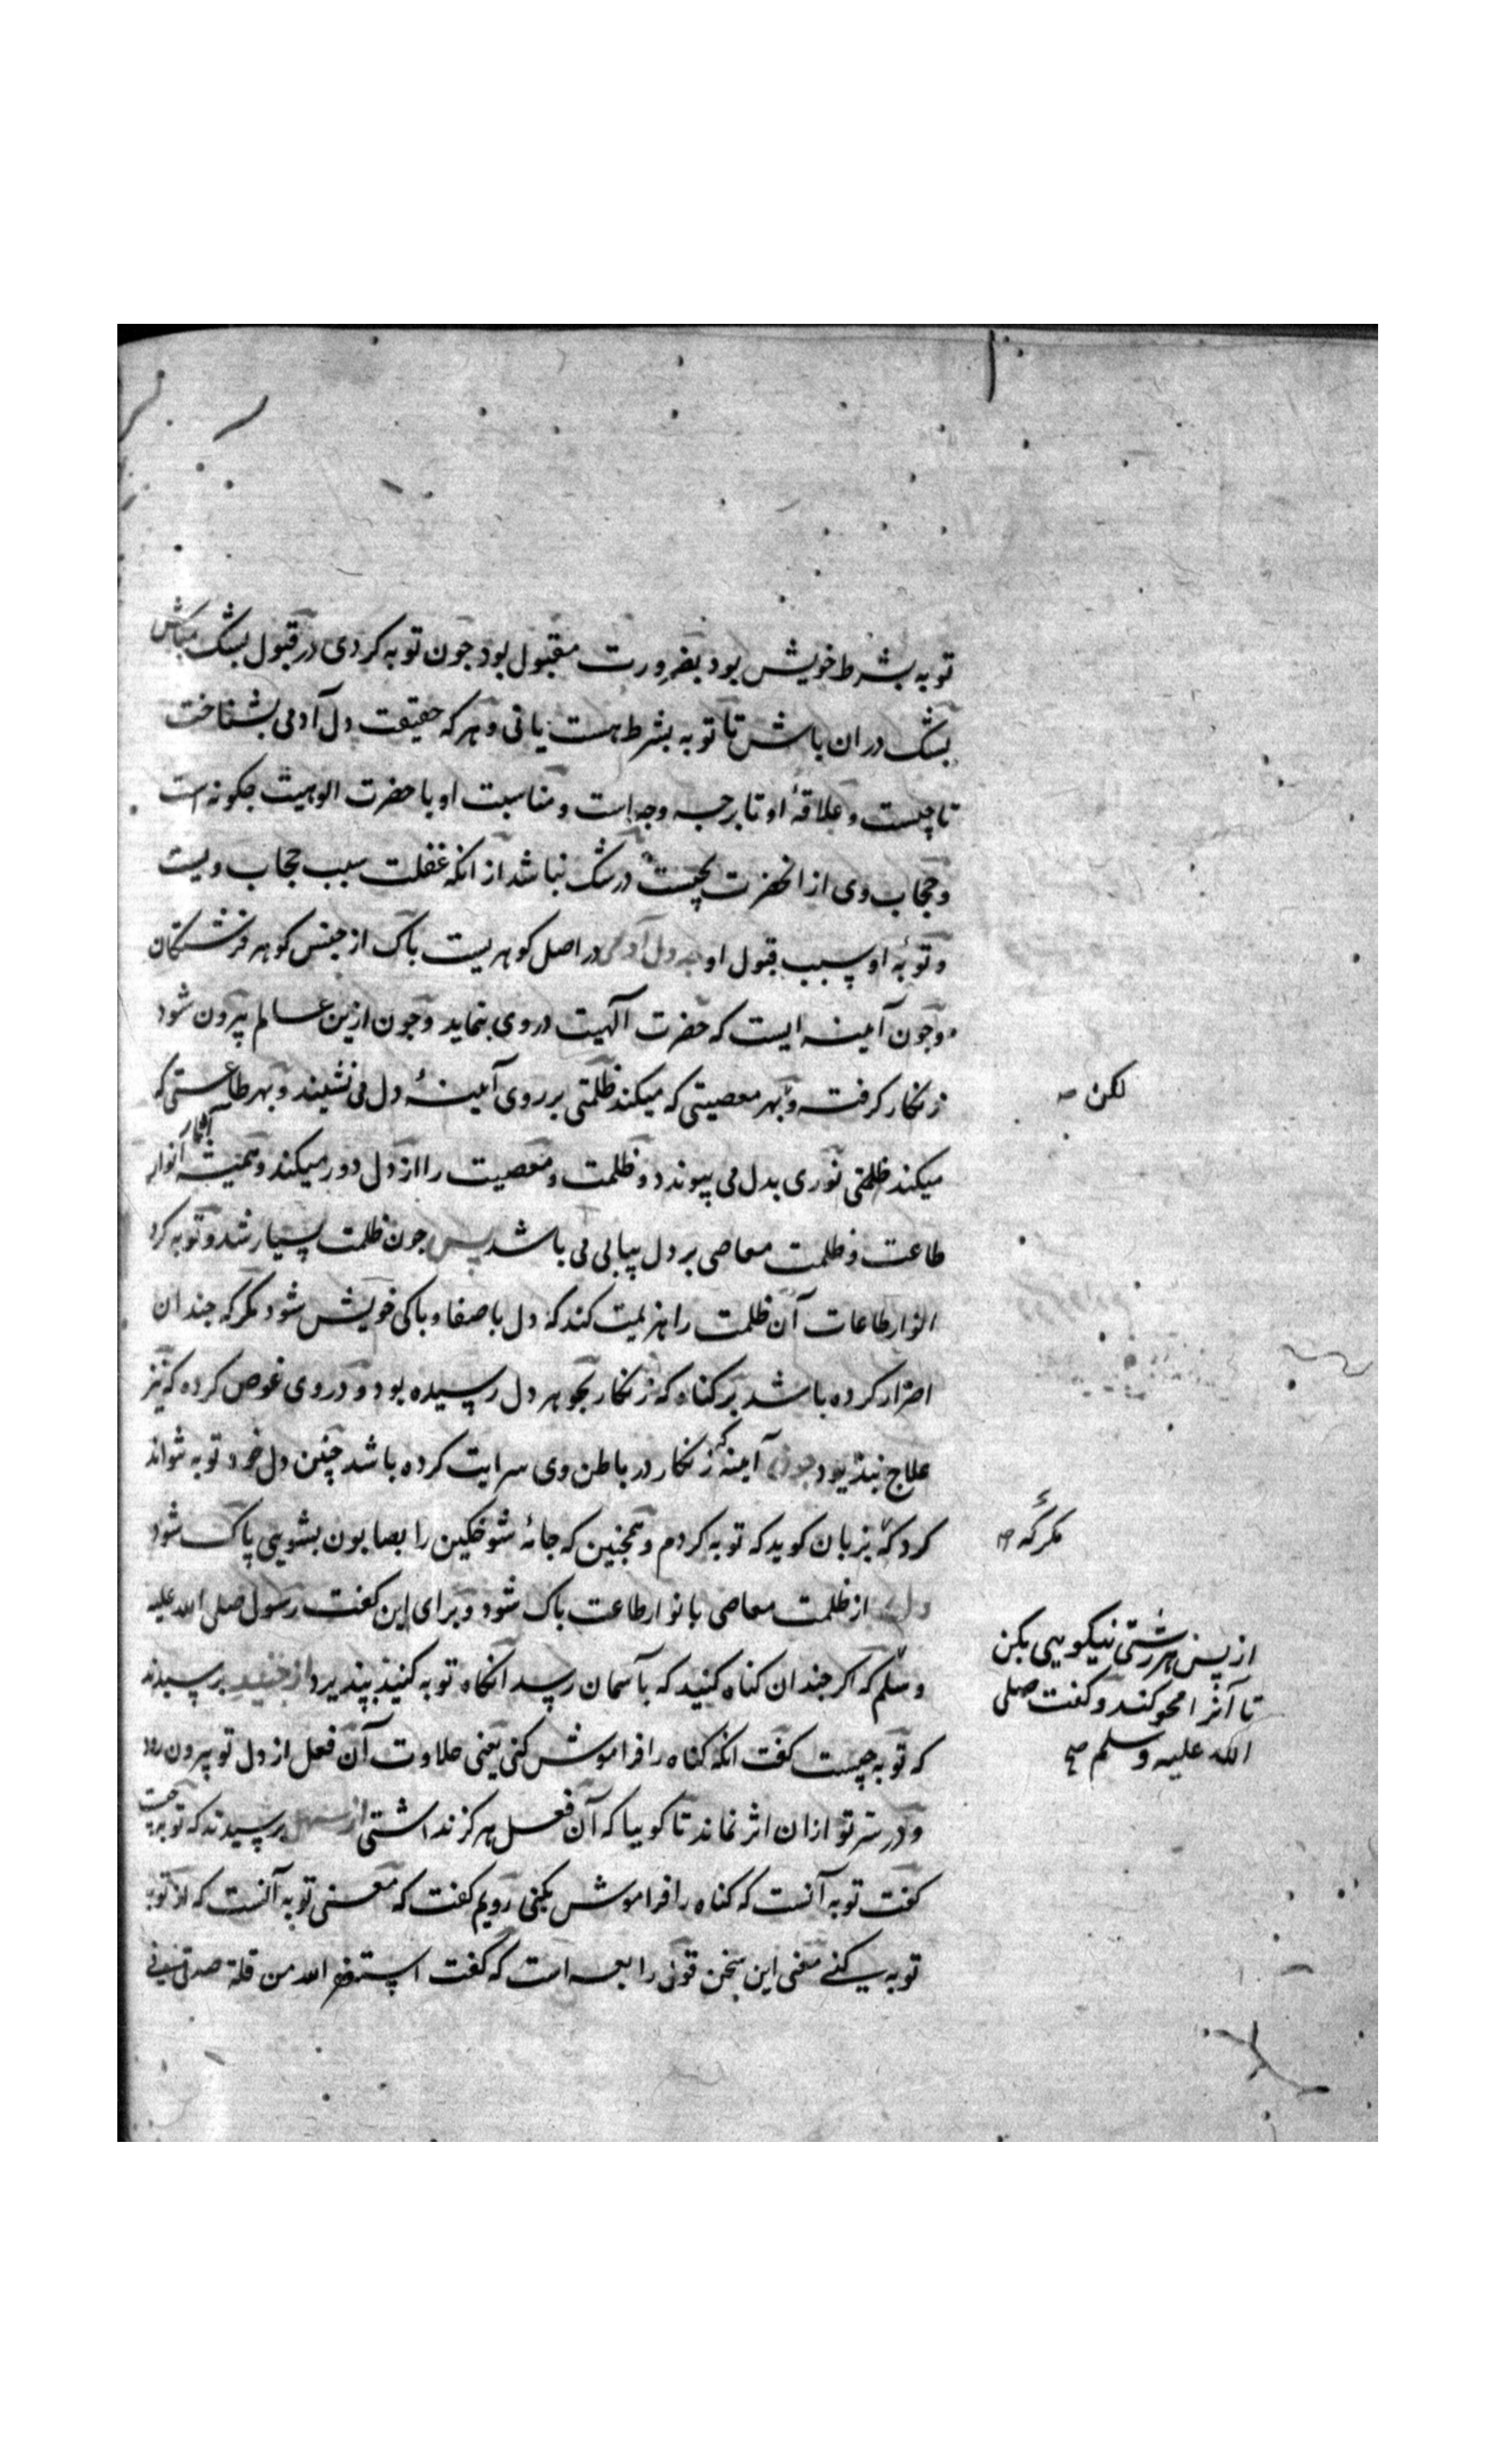 توبه بشرط خویش بود بضرورت مقبول بود جون توبه کردی در قبول بشک مباش
بشک در ان باش تا توبه بشرط هست یا نی و هر که حقیقت دل آدمی بشناخت
تا چیست و علاقهٔ او تا برجه وجه است و مناسبت او با حضرت الوهیت جکونه است
و حجاب وی از انحضرت بچیست در شک نباشد از انکه غفلت سبب حجاب ویست
و توبهٔ او سبب قبول او دل آدمی در اصل کوهریست باک از جنس کوهر فرشتکان
و جون آینه ایست که حضرت آلهیت در وی بنماید و جون ازین عالم بیرون شود
زنکار کرفته و بهر معصیتی که میکند ظلمتی بر روی آینهٔ دل می نشیند و بهر طاعتی که
لکن صح
میکند ظلمتی نوری بدل می پیوندد و ظلمت و معصیت را از دل دور میکند و همیشه آثار انوار
طاعت و ظلمت معاصی بر دل پیاپی می باشد پس جون ظلمت بسیار شد و توبه کرد
انوار طاعات آن ظلمت را هزیمت کند که دل با صفا و باکی خویش شود مکر که جندان
اصرار کرده باشد بر کناه که زنکار بجوهر دل رسیده بود و در وی غوص کرده که نیز
علاج نپذیرد جون آینه که زنکار در باطن وی سرایت کرده باشد چنین دل خود توبه نتواند
کرد که بزبان کوید که توبه کردم و همجنین که جامهٔ شوخکین را بصابون بشویی پاک شود
مکر که صح
دل از ظلمت معاصی بانوار طاعت باک شود و برای این کفت رسول صلی الله علیه
از پس هر زشتی نیکویی بکن
تا آنرا محو کند و کفت صلی
الله علیه و سلم صح
و سلم که اکر جندان کناه کنید که بآسمان رسد انکاه توبه کنید بپذیرد از جنید برسیدند
که توبه چیست کفت انکه کناه را فراموش کنی یعنی حلاوت آن فعل از دل تو بیرون رود
و در سر تو ازان اثر نماند تا کوییا که آن فعل هرکز نداشتی از سهل برسیدند که توبه چیست
کفت توبه آنست که کناه را فراموش نکنی رویم کفت که معنی توبه آنست که از توبه
توبه کنی معنی این سخن قول رابعه است که کفت استغفر الله من قلة صدقی فی